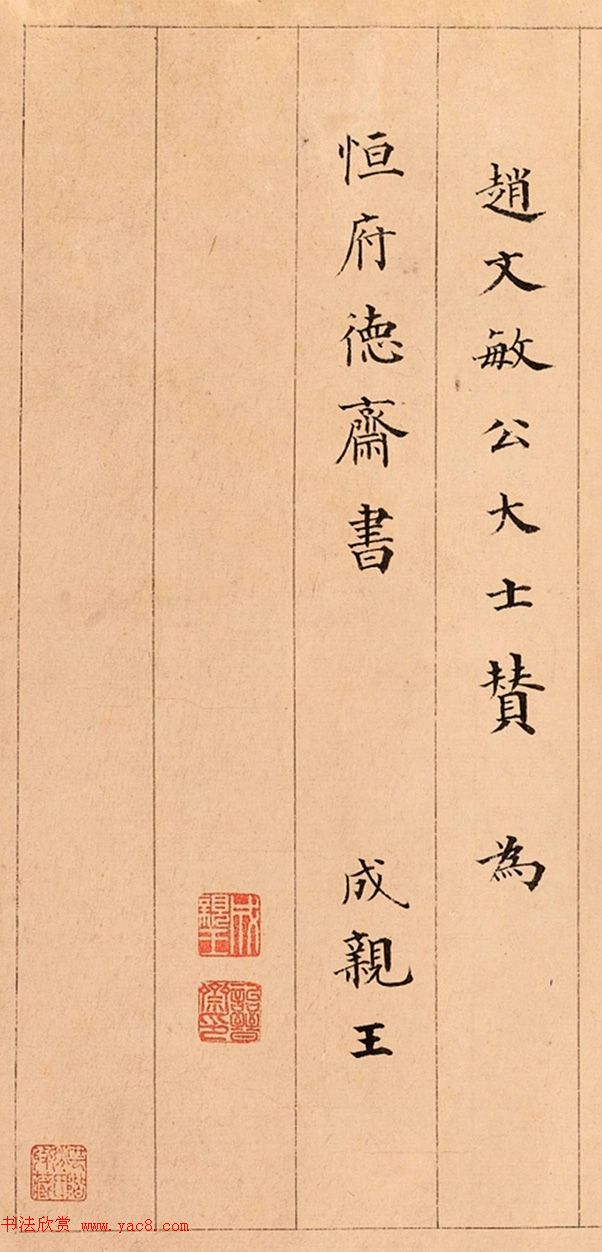 趙文敏公大士賛　為
恒府德齋書　成親王
成親王
詒晉齋印
书法欣赏 www.yac8.com